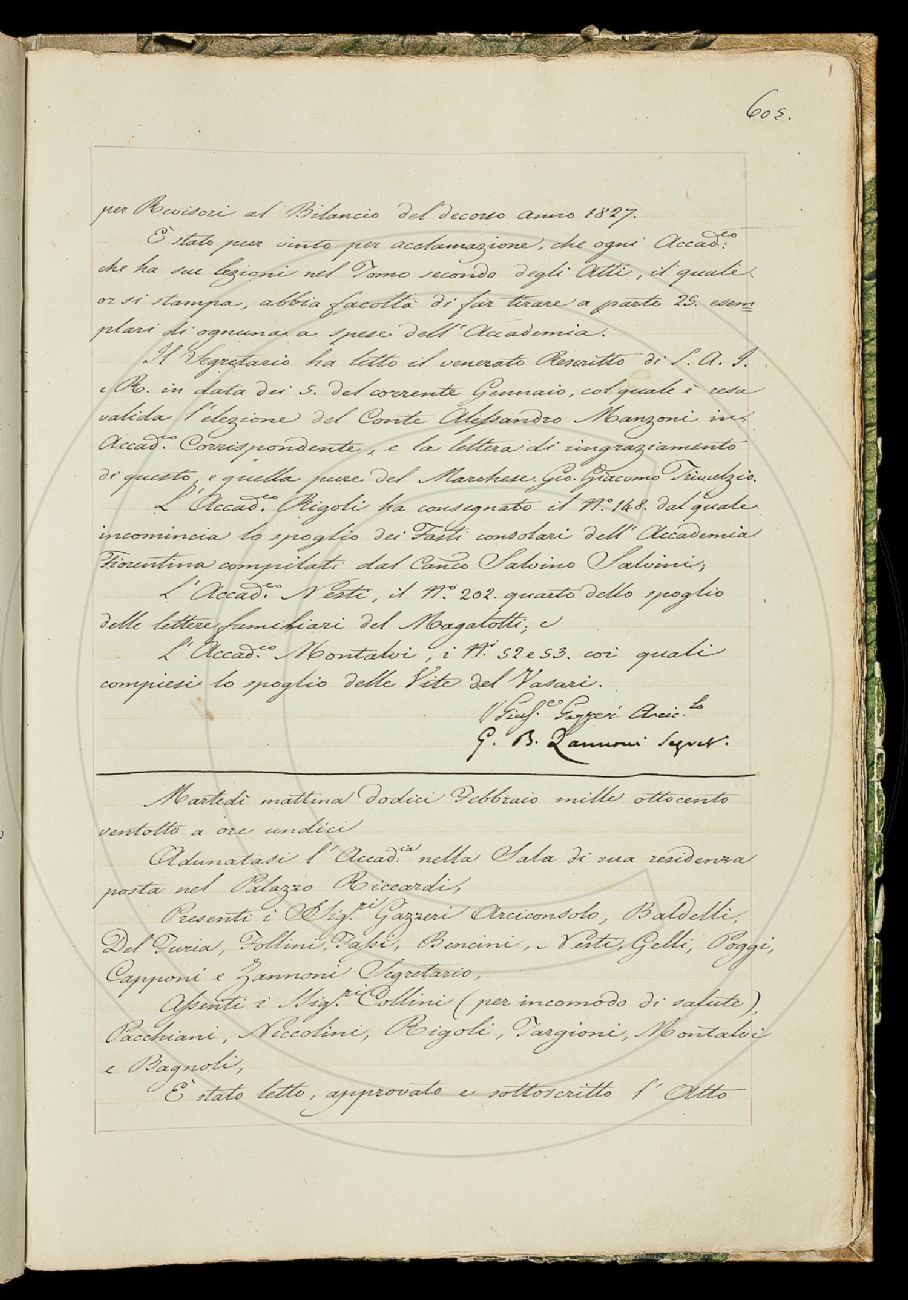 605.
per Revisori al Bilancio del decorso anno 1827.
È stato pur vinto per acclamazione, che ogni Accad.co
che ha sue lezioni nel Tomo secondo degli Atti, il quale
or si stampa, abbia facoltà di far tirare a parte 25. esem=
plari di ognuna a spese dell'Accademia.
Il Segretario ha letto il venerato Rescritto di S. A. I.
e R. in data dei 5. del corrente Gennaio, col quale è resa
valida l'elezione del Conte Alessandro Manzoni in
Accad.co Corrispondente, e la lettera di ringraziamento
di questo, e quella pure del Marchese Gio. Giacomo Trivulzio.
L'Accad.co Rigoli ha consegnato il N.o 148. dal quale
incomincia lo spoglio dei Fasti consolari dell'Accademia
Fiorentina compilati dal Can.co Salvino Salvini;
L'Accad.co Nesti, il N.o 202. quarto dello spoglio
delle lettere familiari del Magalotti; e
L'Accad.co Montalvi, i N.i 52 e 53. coi quali
compiesi lo spoglio delle Vite del Vasari.
Gius.e Gazzeri Arcic.lo
G. B. Zannoni Segret.
Martedì mattina dodici Febbraio mille ottocento
ventotto a ore undici
Adunatasi l'Accad.ia nella Sala di sua residenza
posta nel Palazzo Riccardi,
Presenti i Sig.ri Gazzeri Arciconsolo, Baldelli,
Del Furia, Follini, Fassi, Bencini, Nesti, Gelli, Poggi,
Capponi e Zannoni Segretario,
Assenti i Sig.ri Collini (per incomodo di salute),
Pacchiani, Niccolini, Rigoli, Targioni, Montalvi
e Bagnoli,
È stato letto, approvato e sottoscritto l'Atto